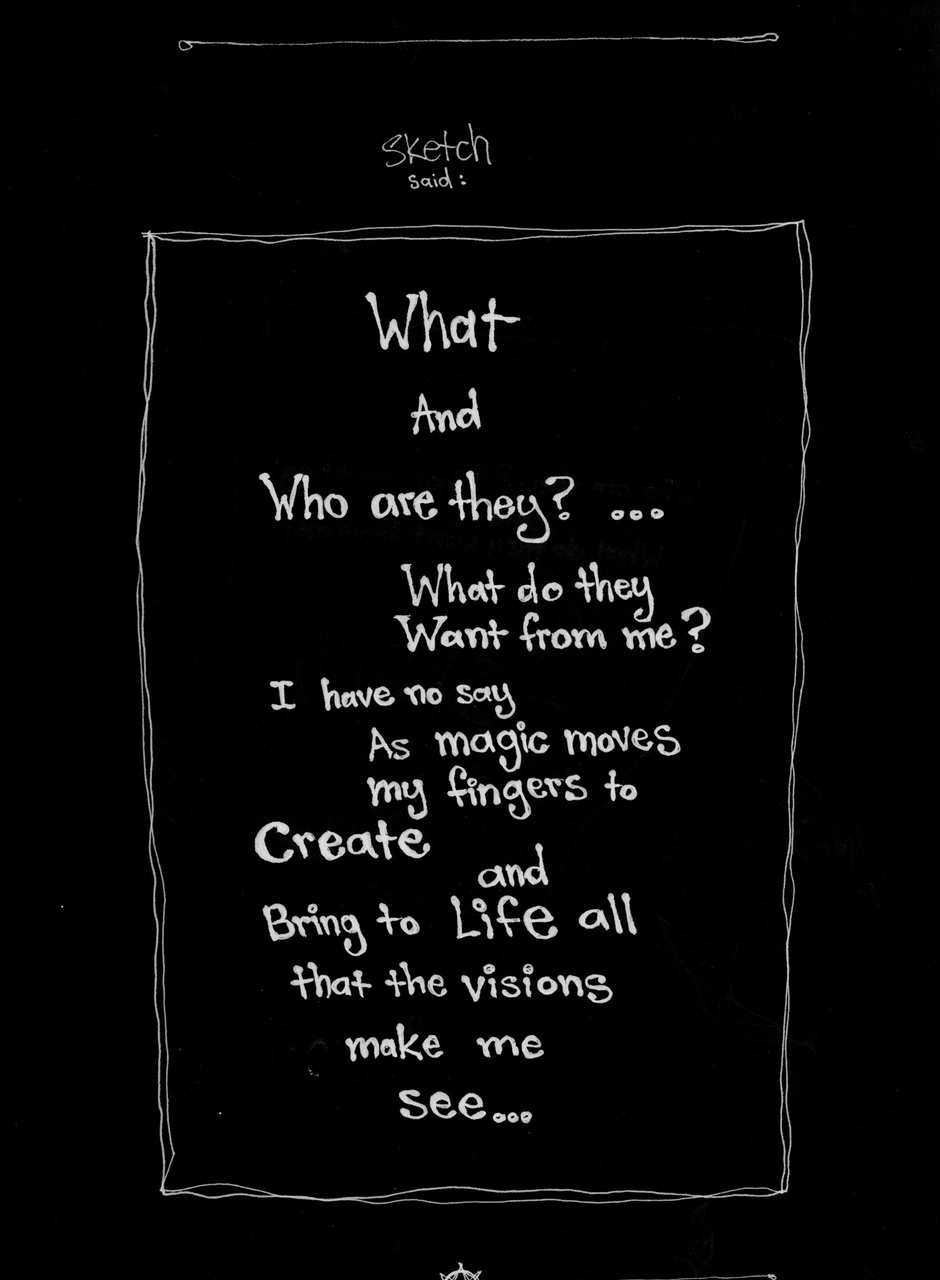 Sketch
said:
What
And
Who are they? ...
What do they
Want from me?
I have no say
As magic moves
my fingers to
Create
and
Bring to Life all
that the visions
make me
see...